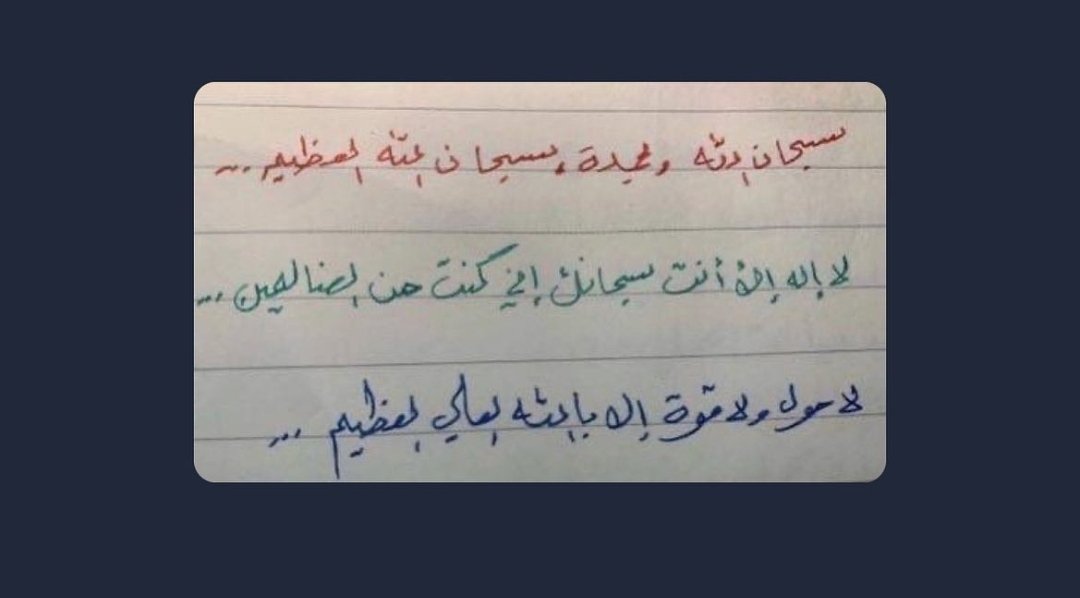 سبحان الله وبحمدة، سبحان الله العظيم ...
لا إله إلا أنت سبحانك إني كنت من الضالمين ...
لا حول ولا قوة إلا بالله العالي العظيم ...